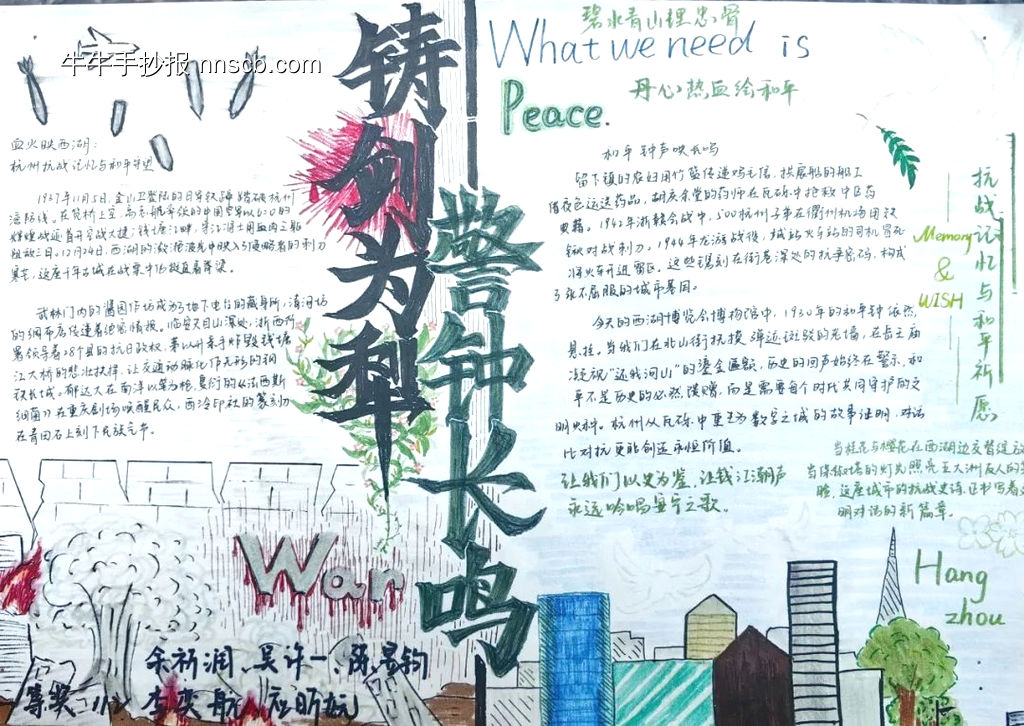 牛牛手抄报 nnscb.com
铸剑为犁
警钟长鸣
碧水青山埋忠骨
What we need is
丹心热血绘和平
Peace.
血火映西湖:
杭州抗战记忆与和平守望
1937年11月5日,金山卫登陆的日军铁蹄踏破杭州
湾防线。在笕桥上空,高志航率领的中国空军以6:0的
12月24日,西湖的
寒芒,这座千年古城在战火中
武林门内的酱园作坊成为地下电台的藏身所,清河坊
的绸布店传递着绝密情报。临安天目山深处,浙西行
署领导着28个县的抗日政权,茅以升亲手炸毁钱塘
江大桥的悲壮抉择,让交通动脉化作无形的钢
铁长城。郁达夫在南洋以笔为枪,夏衍的《法西斯
细菌》在重庆剧场唤醒民众,西泠印社的篆刻刀
在青田石上刻下民族气节。
和平钟声映长鸣
留下镇的农妇用竹篮传递鸡毛信,拱宸桥的船工
借夜色运送药品,胡庆余堂的药师在瓦砾中抢救中医药
典籍。1942年浙赣会战中,500杭州子弟在衢州机场用铁
锹对战刺刀。1944年龙游战役,城站火车站的司机冒死
将火车开进雷区。这些镌刻在街巷深处的抗争密码,构成
了永不屈服的城市基因。
今天的西湖博览会博物馆中,1930年的和平钟依然
悬挂。当我们在北山街抚摸弹痕斑驳的老墙,在岳王庙
凝视"还我河山"的鎏金匾额,历史的回声始终在警示:和
平不是历史的必然馈赠,而是需要每个时代共同守护的文
明火种。杭州从瓦砾中重生为数字之城的故事证明,对话
比对抗更能创造永恒价值。
让我们以史为鉴,让钱江潮声
永远吟唱安宁之歌。
抗战记忆与和平祈愿
Memory
&
WISH
当桂花与樱花在西湖边交替绽放
当保俶塔的灯光照亮五大洲友人的
这座城市的抗战史诗,正书写着
明对话的新篇章。
Hang
zhou
War
等奖